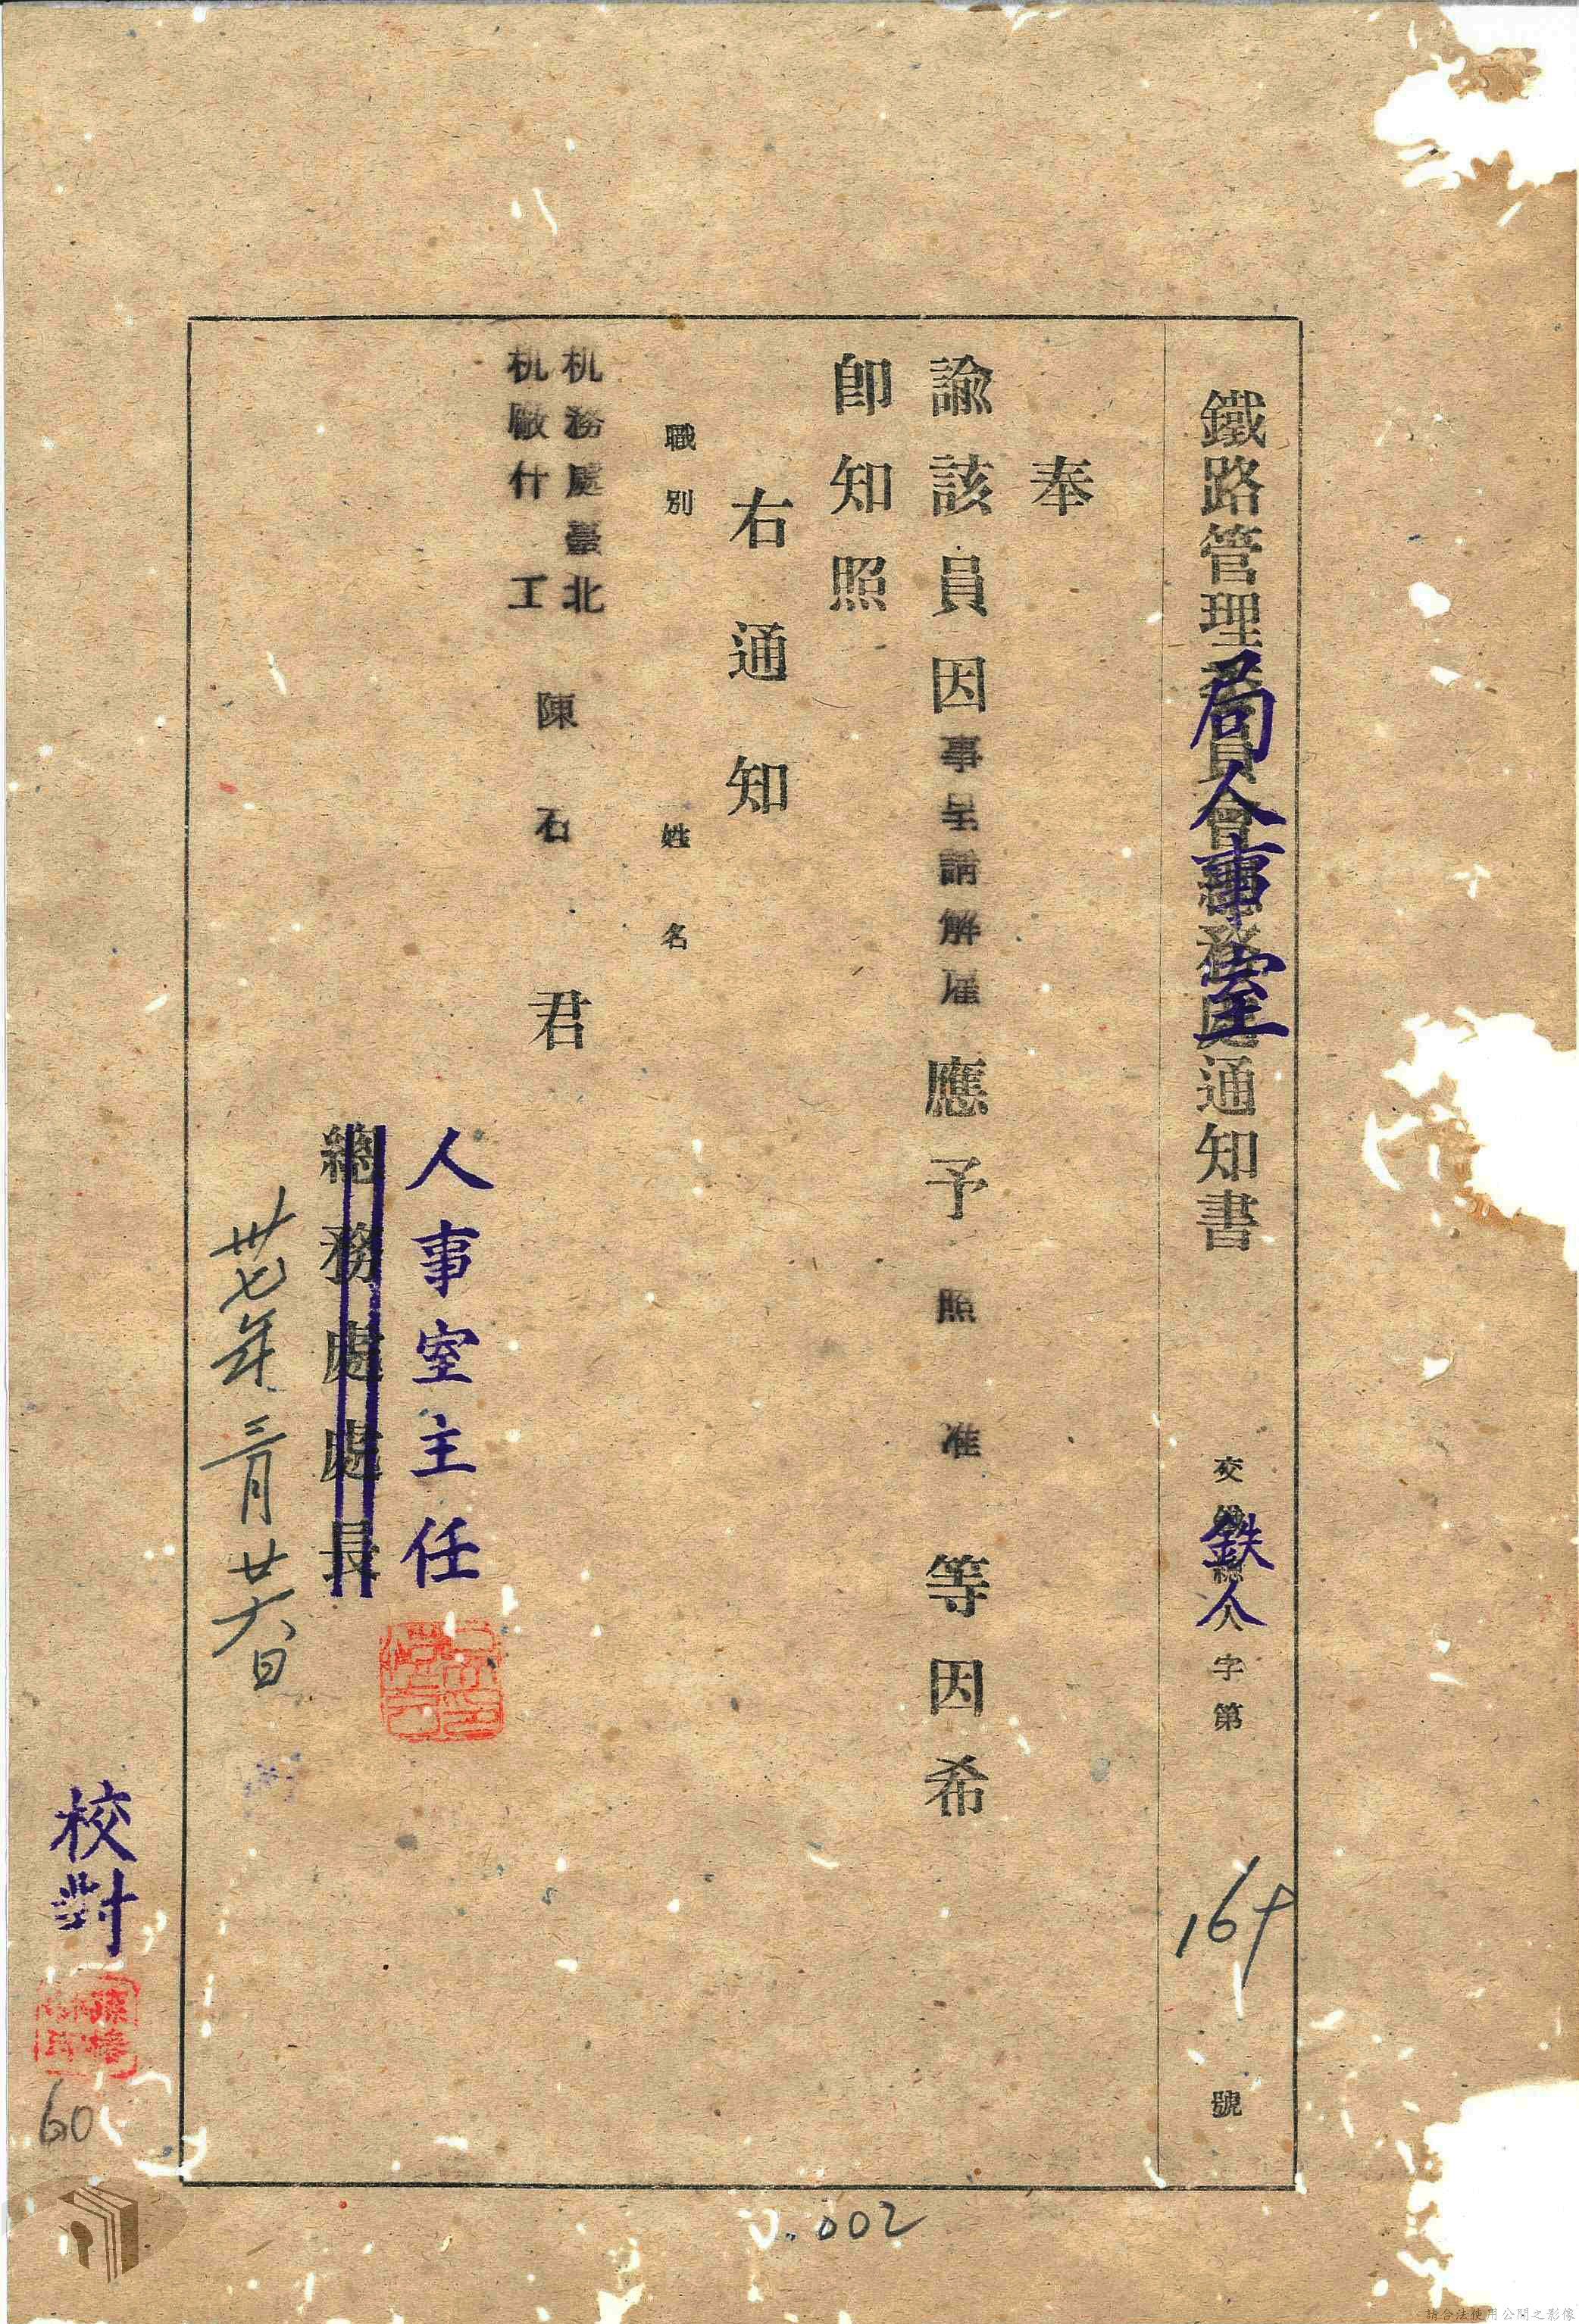 鐵路管理局人事室通知書 交鉄人字第 號
奉
諭該員因事呈請解雇應予照准等因希
卽知照
右通知
職別 姓名
机務處臺北
机廠什工 陳石 君
人事室主任
總務處處長
卅七年三月廿六日
校對
60
002
請合法使用公開之影像